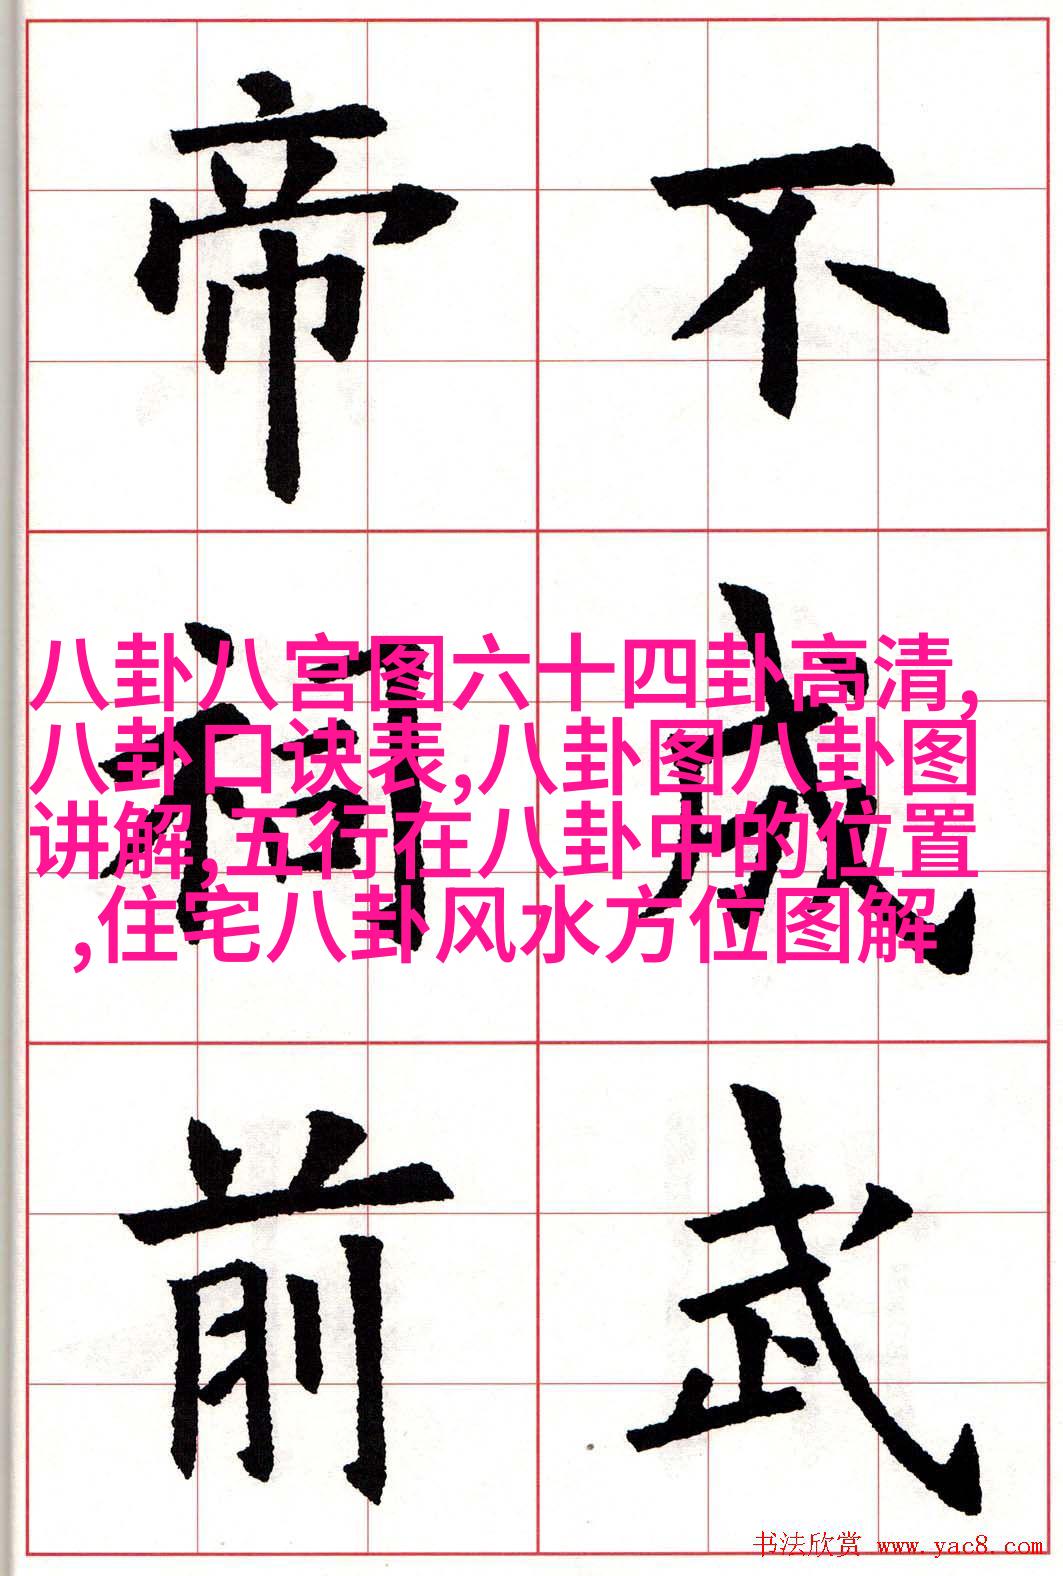 不
武
帝
祠
前
八卦八宫图六十四卦高清,
八卦口诀表,八卦图八卦图
讲解,五行在八卦中的位置
,住宅八卦风水方位图解
书法欣赏 www.yac8.com